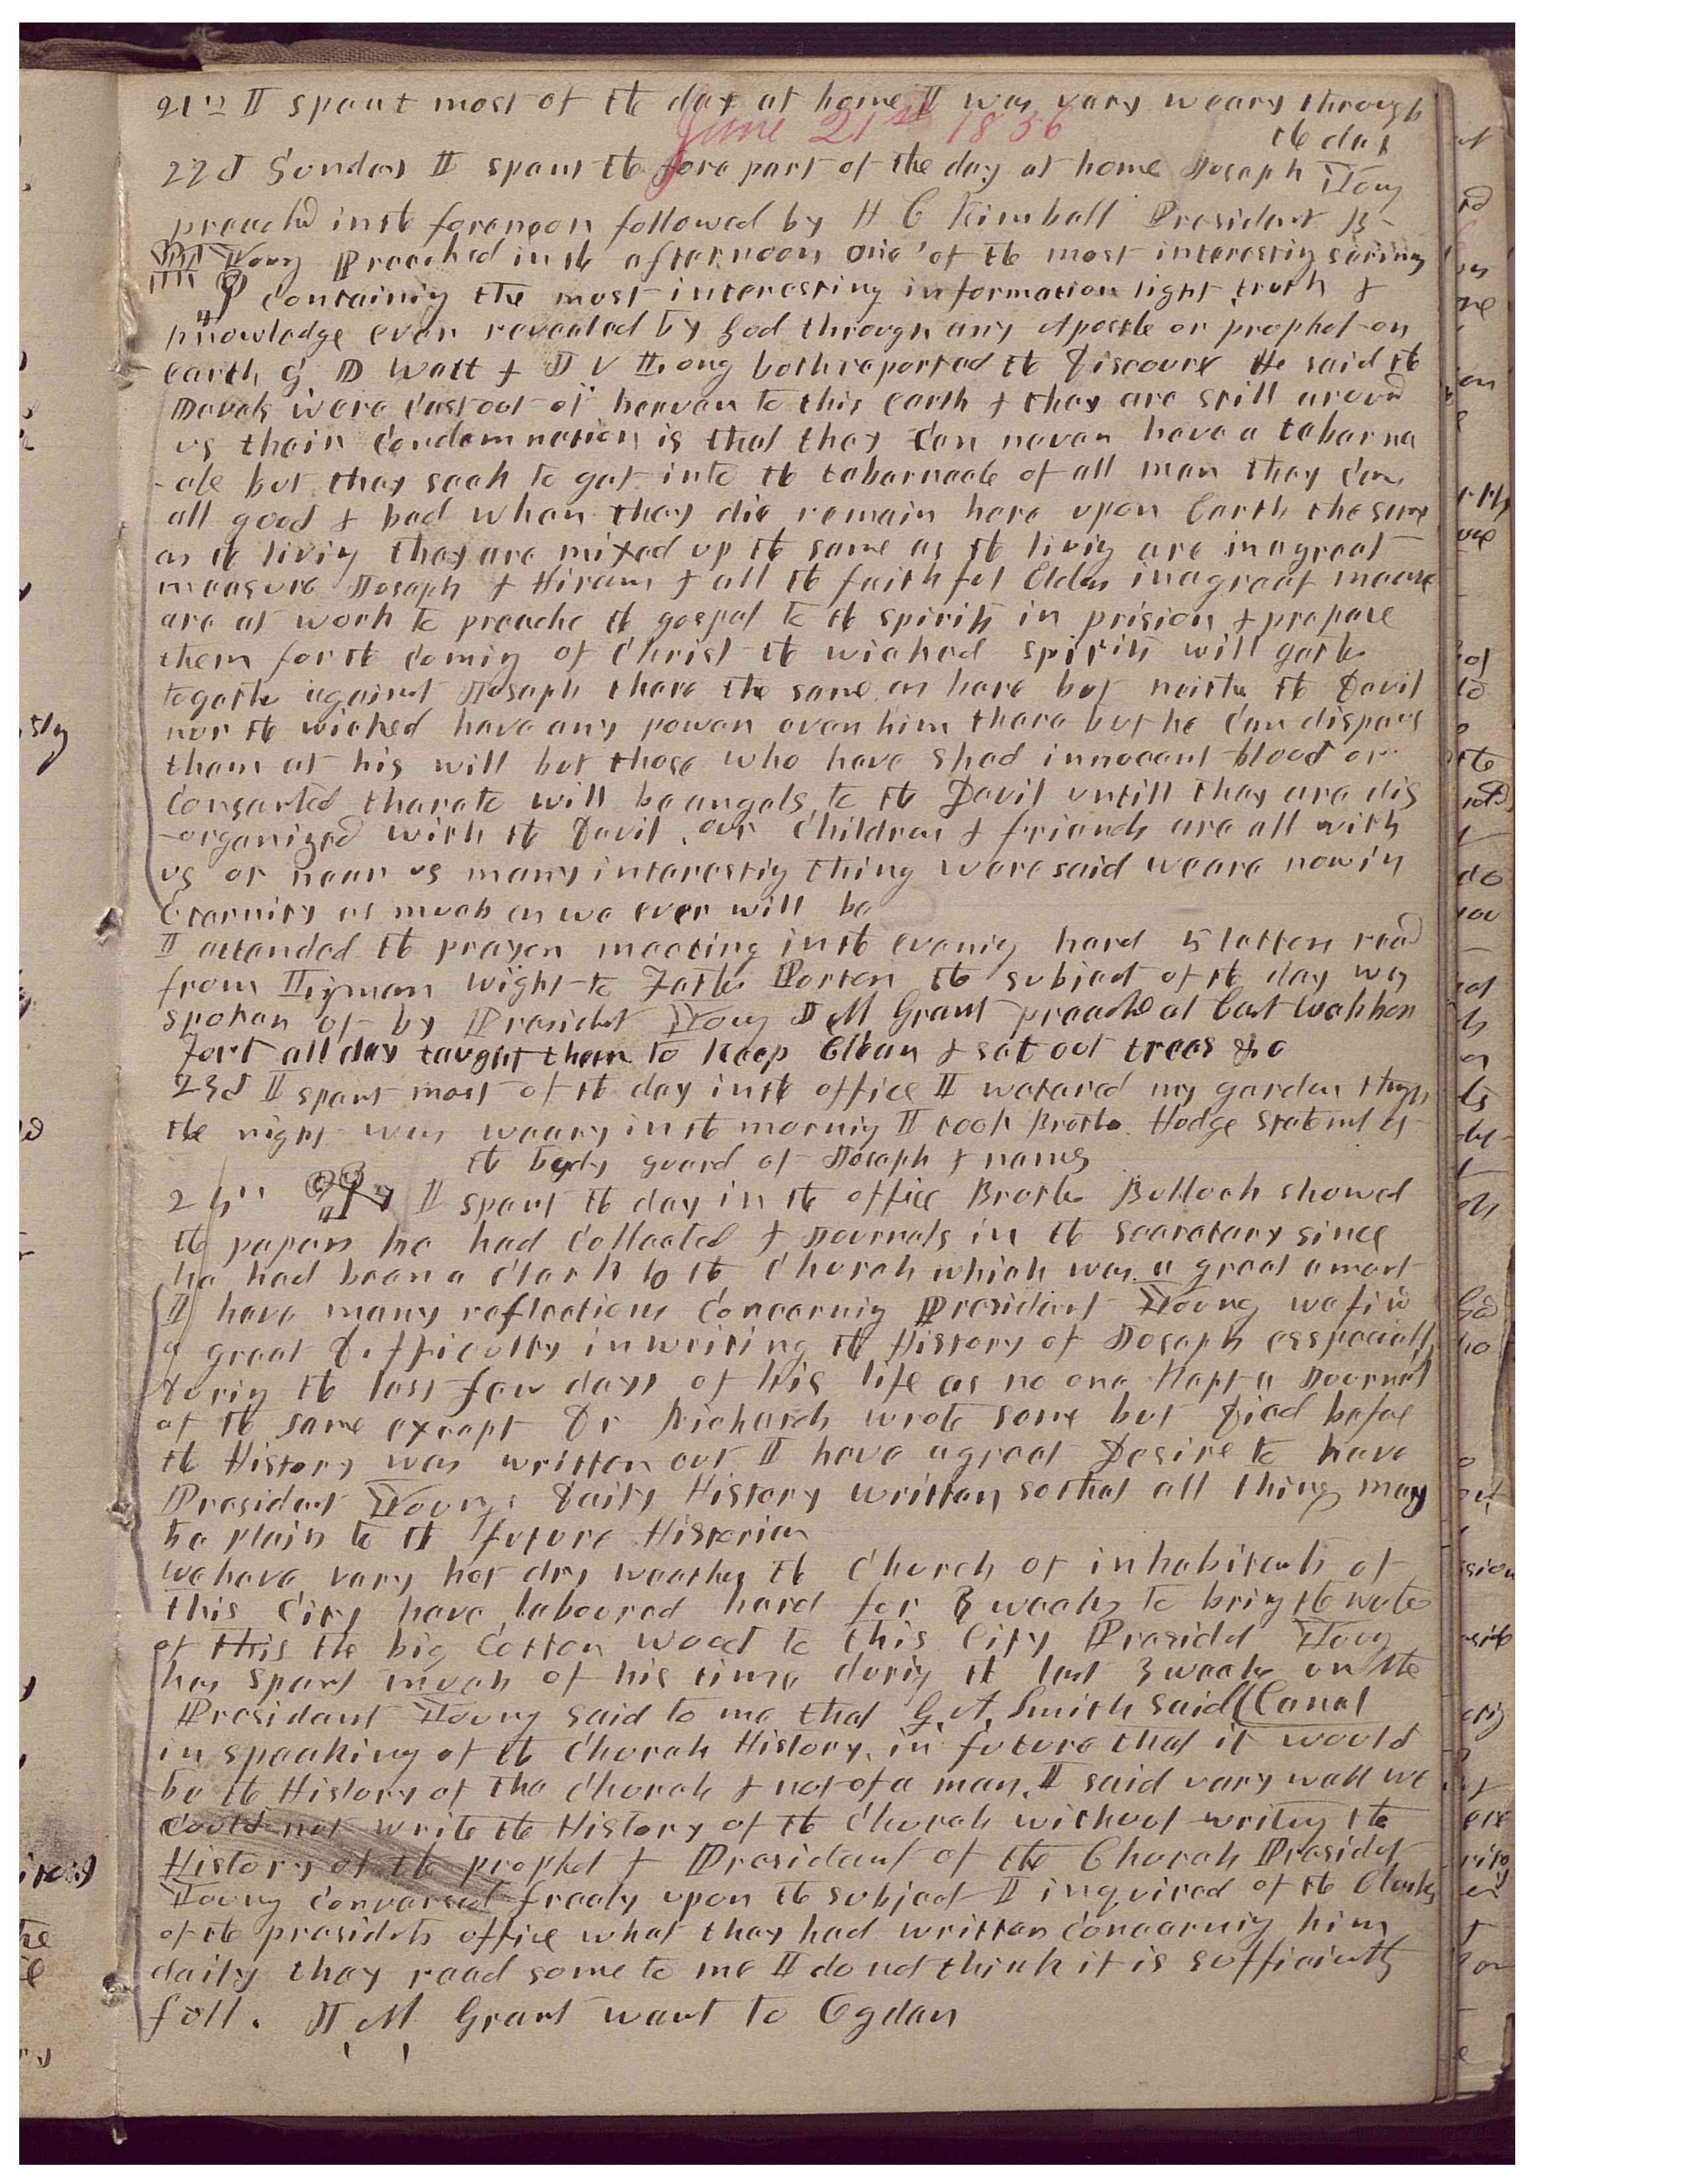 21st I spent most of the day at home I was very weary through
the day
June 21st 1856
22d Sunday I spent the fore part of the day at home Joseph Young
preached in the forenoon followed by H C Kimball President B-
Young Preached in the afternoon one of the most interesting
containing the most interesting information light truth &
knowledge ever revealed by God through any Apostle or prophet on
earth G D Watt & J V Long both reported the Discourse He said the
Devels were cast out of heaven to this earth & they are still around
us their Condemnation is that they Can never have a taberna
-cle but they seek to get into the tabernacle of all men they Can
all good & bad when they die remain here upon Earth the same
as the living they are mixed up the same as the living are in a great
measure Joseph & Hiram & all the faithful Elders in a great measure
are at work to preache the gospel to the spirits in prision & prepare
them for the Coming of Christ the wicked spirits will gather
together against Joseph there the same as here but neither the Devil
nor the wicked have any power over him there but he Can disperse
them at his will but those who have shed innocent blood or
Consented thereto will be angels to the Devil untill they are dis
-organized with the Devil our Children & friends are all with
us or near us many interesting thing were said we are now in
Eternity as much as we ever will be
I attended the prayer meeting in the evening herd 5 letters read
from Lyman Wight to Father Morley the subject of the day was
spoken of by President Young J M Grant preached at East Weber
fort all day taught them to Keep Clean & set out trees &c
23d I spent most of the day in the office I watered my garden through
the night was weary in the morning I took Brother Hodge statement of
the body guard of Joseph & names
24th I spent the day in the office Brother Bullock showed
the papers he had Collected & Journals in the secretary since
he had been a Clerk to the Church which was a great amout
I have many reflections Concerning President Young we find
a great Difficulty in writing the History of Joseph esspecially
during the last few days of his life as no one Kept a Journal
of the same except Dr Richards wrote some but Died before
the History was written out I have a great Desire to have
President Youngs Daily History written so that all things may
be plain to the future Historian
we have very hot dry weather the Church of inhabitants of
this City have laboured hard for 3 weeks to bring the water
of this the big Cotton wood to this City President Young
has spent much of his time during the last 3 weeks on the
Canal
President Young said to me that G. A. Smith said
in speaking of the Church History, in future that it would
be the History of the Church & not of a man. I said vary well we
Could not write the History of the Church without writing the
History of the prophet & President of the Church President
Young Conversed freely upon the subject I inquired of the Clerks
of the presidets office what they had written Concerning him
daily they read some to me I do not think it is sufficiently
full. J M Grant went to Ogden